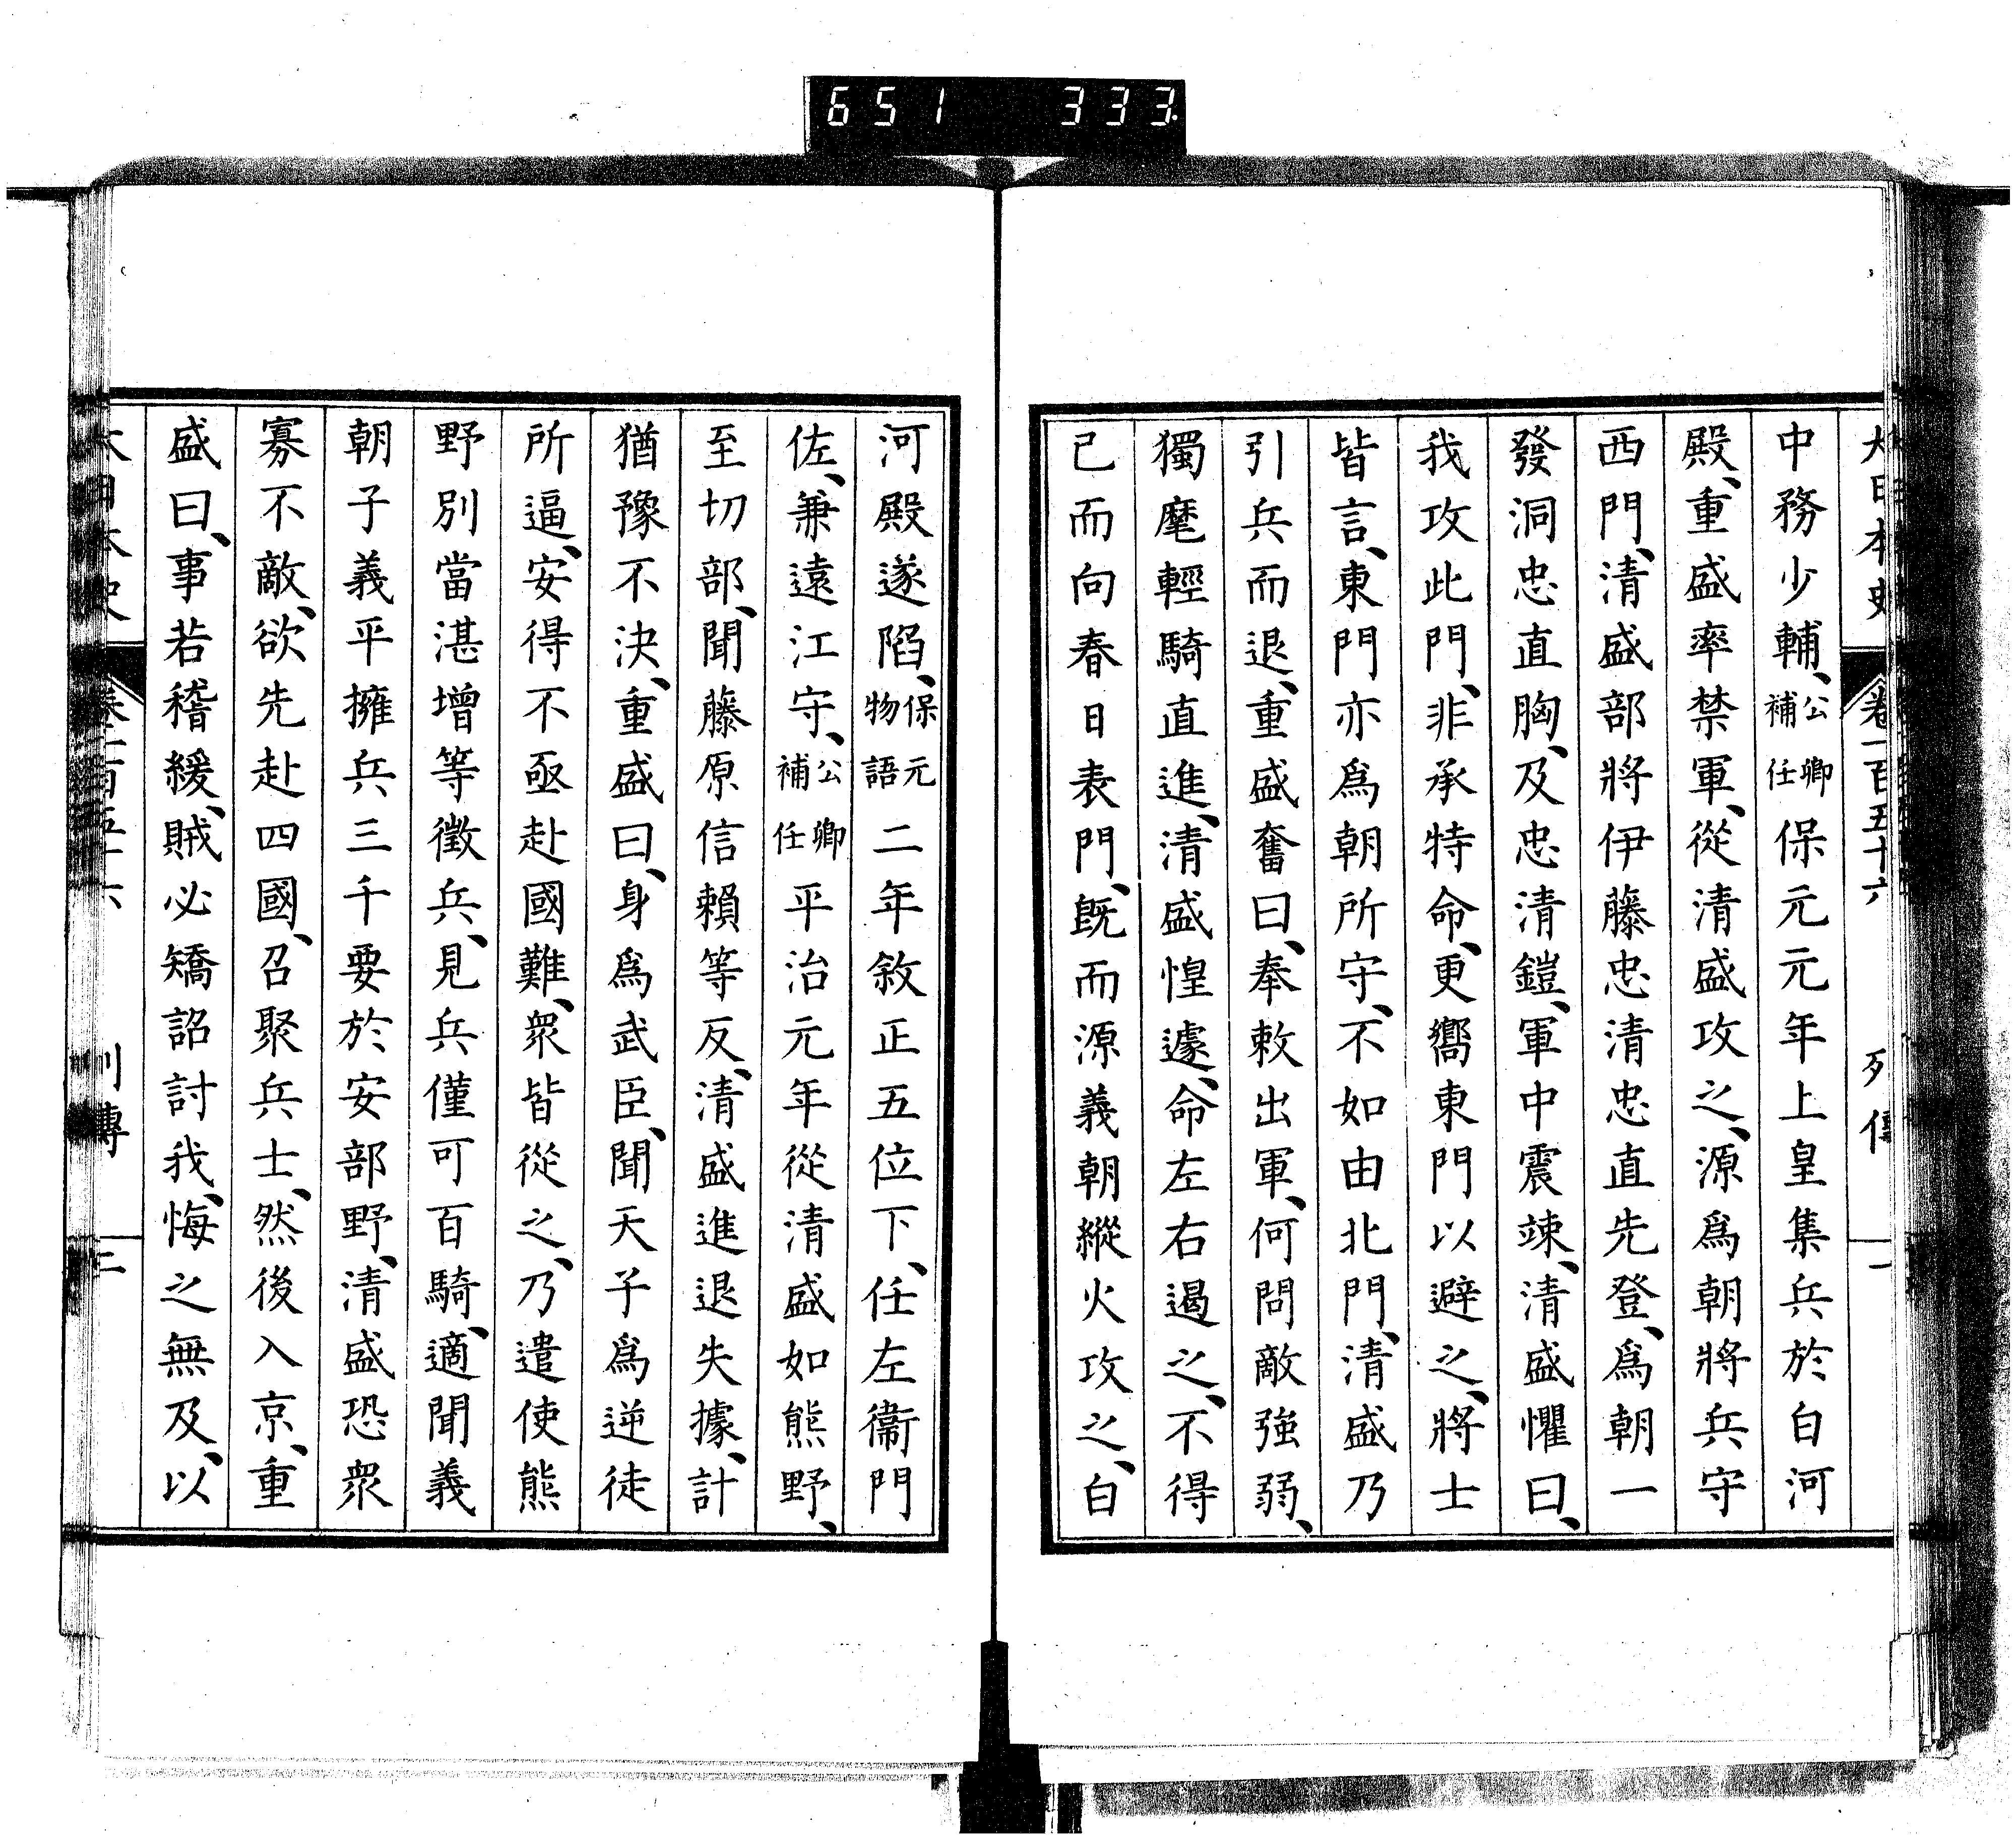 651 333
大日本史 卷一百五十六 列傳 一
中務少輔、公卿補任保元元年上皇集兵於白河
殿、重盛率禁軍、從清盛攻之、源爲朝將兵守
西門、清盛部將伊藤忠清忠直先登、爲朝一
發洞忠直胸、及忠清鎧、軍中震竦、清盛懼曰、
我攻此門、非承特命、更嚮東門以避之、將士
皆言、東門亦爲朝所守、不如由北門、清盛乃
引兵而退、重盛奮曰、奉敕出軍、何問敵強弱、
獨麾輕騎直進、清盛惶遽、命左右遏之、不得
已而向春日表門、既而源義朝縱火攻之、白
河殿遂陷、保元物語 二年敘正五位下、任左衞門
佐、兼遠江守、公卿補任平治元年從清盛如熊野、
至切部、聞藤原信賴等反、清盛進退失據、計
猶豫不決、重盛曰、身爲武臣、聞天子爲逆徒
所逼、安得不亟赴國難、衆皆從之、乃遣使熊
野別當湛增等徵兵、見兵僅可百騎、適聞義
朝子義平擁兵三千要於安部野、清盛恐衆
寡不敵、欲先赴四國、召聚兵士、然後入京、重
盛曰、事若稽緩、賊必矯詔討我、悔之無及、以
大日本史 卷一百五十六 列傳 二